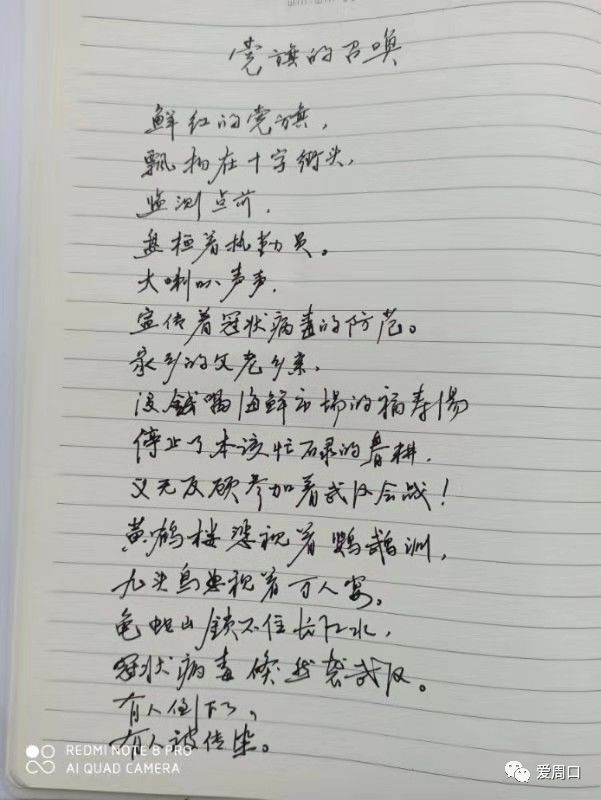 党旗的召唤
鲜红的党旗，
飘扬在十字街头，
监测点前，
盘桓着执勤员。
大喇叭声声，
宣传着冠状病毒的防范。
家乡的父老乡亲，
没钱喝海鲜市场的福寿汤
停止了本该忙碌的春耕，
义无反顾参加着武汉会战！
黄鹤楼悲视着鹦鹉洲，
九头鸟悲视着万人宴。
龟蛇山锁不住长江水，
冠状病毒倏然袭武汉。
有人倒下了，
有人被传染。
REDMI NOTE 8 PRO
AI QUAD CAMERA
爱周口